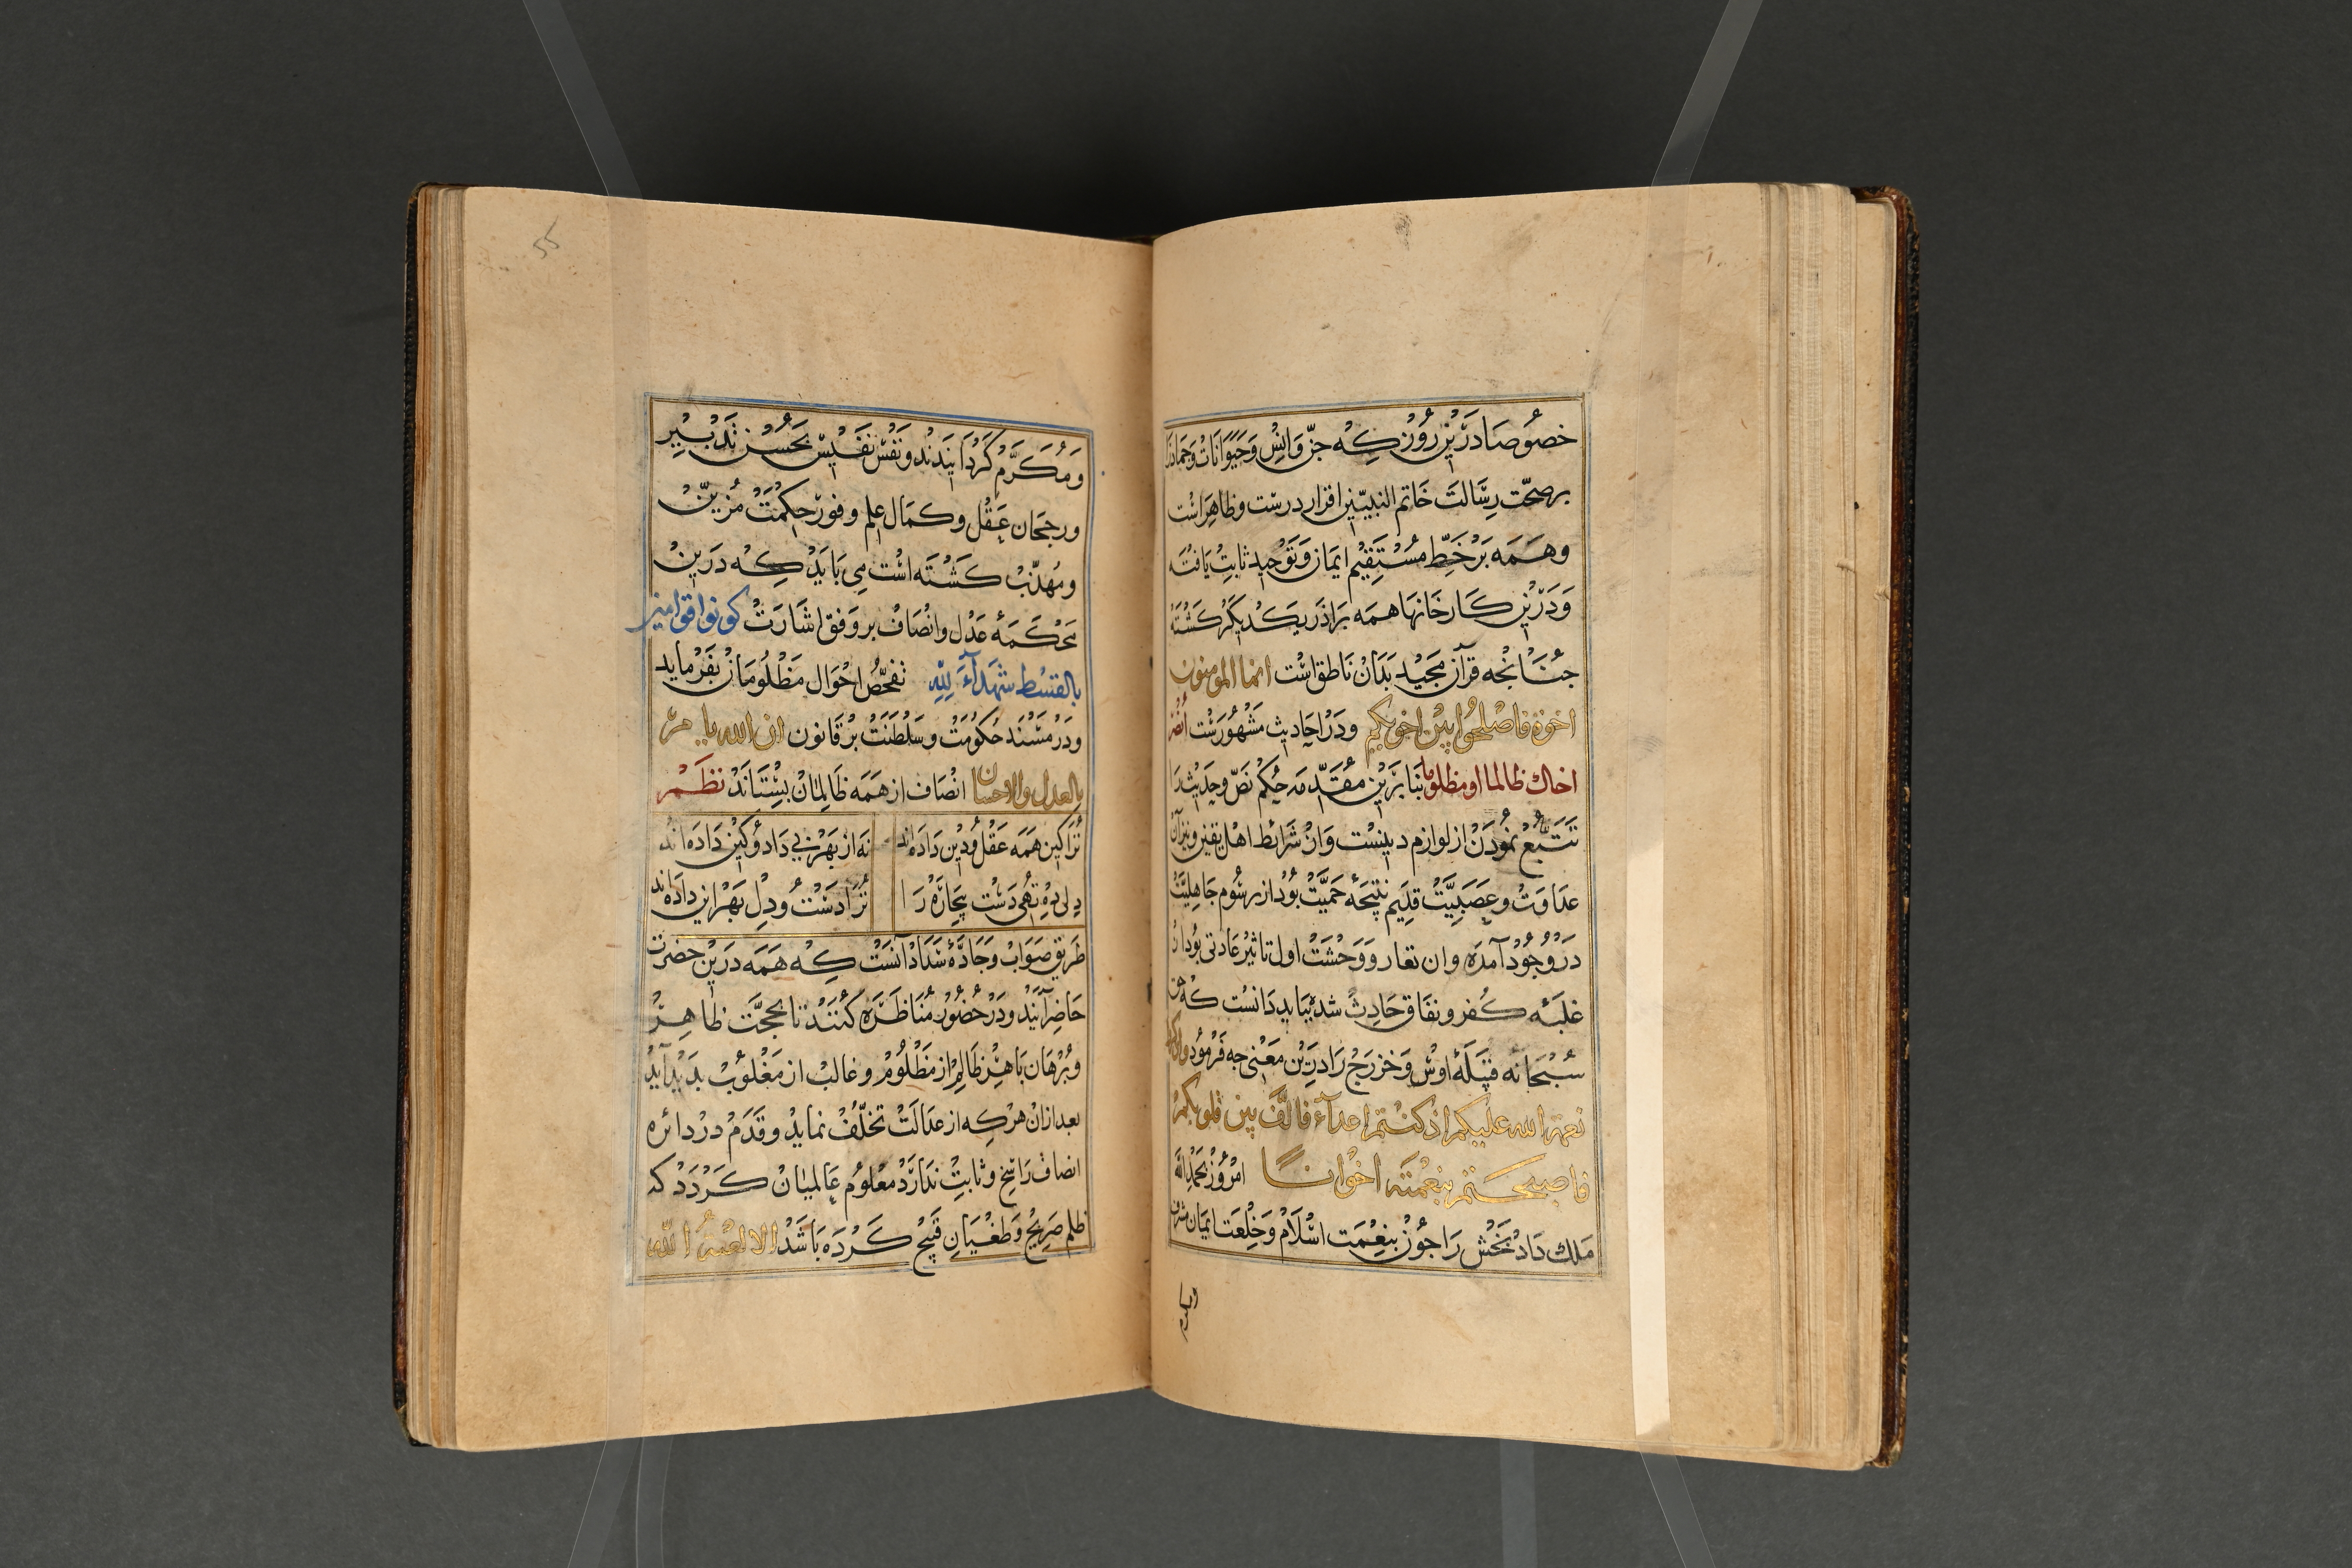 خصوصا درین روز که جن و انس و حیوانات و جمادات
بر صحت رسالت خاتم النبیین اقرار درست و ظاهر است
و همه بر خط مستقیم ایمان و توحید ثابت یافته
و درین کارخانها همه براذر یکدیگر کشته
جنانجه قرآن مجید بدان ناطق است انما المومنون
اخوة فاصلحوا بین اخویکم و در احادیث مشهورست أنصر
اخاك ظالما او مظلوما بنا برین مقدمه حکم نص و حدیث را
تتبع نمودن از لوازم دینست و ان شرائط اهل یقین و نیز آن
عداوت و عصبیت قدیم نتیجهٔ حمیت بود از رسوم جاهلیت
در وجود آمده وان تعار و وحشت اول تاثیر عادتی بود از
غلبهٔ کفر و نفاق حادث شده بباید دانست که حق
سبحانه قبیلهٔ اوس و خزرج را درین معنی جه فرمود واذکروا
نعمة الله علیکم اذ کنتم اعداء فالف بین قلوبکم
فاصبحتم بنعمته اخوانا امروز بحمد الله
ملك داد بخش را جون بنعمت اسلام و خلعت ایمان مشرف
و مکرم
55
و مکرم کردانیدند و نفس نفیس بحسن تدبیر
و رجحان عقل و کمال علم و وفور حکمت مزین
و مهذب کشته است می باید که درین
محکمهٔ عدل و انصاف بر وفق اشارت کونوا قوامین
بالقسط شهداء لله تفحص احوال مظلومان بفرماید
و در مسند حکومت و سلطنت بر قانون ان الله یامر
بالعدل والاحسان انصاف از همه ظالمان بستاند نظم
ترا کین همه عقل و دین داده اند نه از بهر بی داد و کین داده اند
دلی ده تهی دست بیجاره را ترا دست و دل بهر این داده اند
طریق صواب و جادهٔ سداد آنست که همه درین حضرت
حاضر آیند و در حضور مناظره کنند تا بحجت ظاهر
و برهان باهر ظالم از مظلوم و غالب از مغلوب بدید آید
بعد ازان هر که از عدالت تخلف نماید و قدم در دائره
انصاف راسخ و ثابت ندارد معلوم عالمیان کردد که
ظلم صریح و طغیان قبیح کرده باشد الا لعنة الله